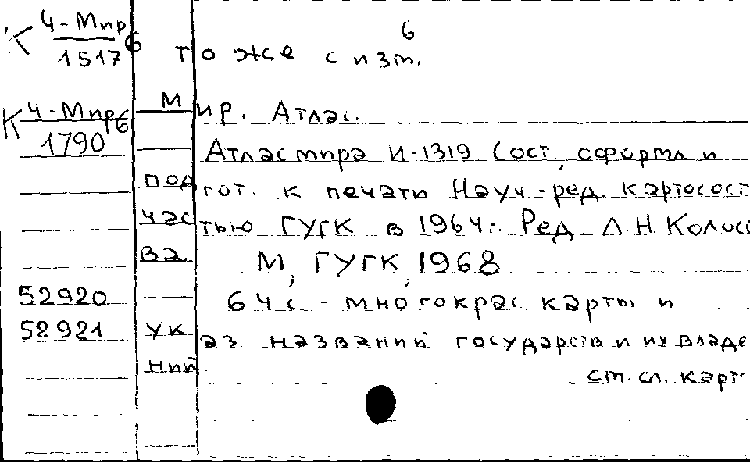 К 4-Мир
1517 б то же с изм. 6
К 4-Мир б Мир. Атлас.
1790
Атлас мира И-1319 Сост, оформл и
подгот. к печати Науч-ред. картосост
частью ГУГК в 1964г. Ред Л Н Колос
ва М, ГУГК, 1968
52920 64 с - многокрас карты и
52921 указ названий государств и их владе
ний ст. сл. карт